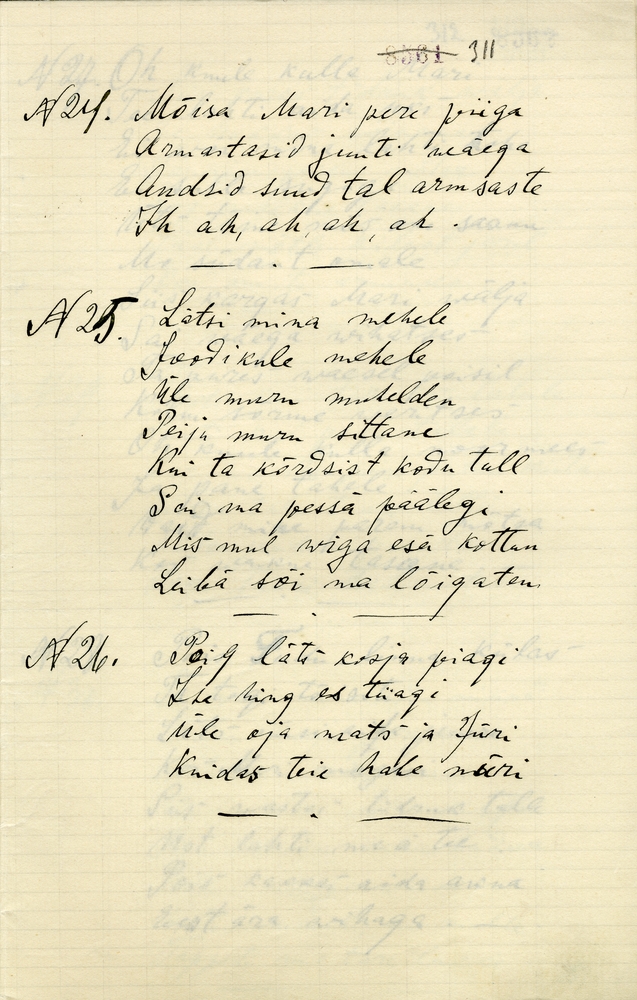 8561 311
N 24. Mõisa Mari pere piiga
Armastasid junti väega
Andsid suud tal armsaste
Ih ah, ah, ah, ah.
N 25. Lätsi mina mehele
Joodikule mehele
Üle muru mukelden
Peiju muru sittane
Kui ta kõrdsist kodu tull
Sai ma pessä päälegi
Mis mul wiga esä kottun
Leibä sõi ma lõigaten
N 26. Poig läts kosja piagi
Ise hing es tiiagi
Üle oja mats ja Jüri
Kuidas teie hale müüri